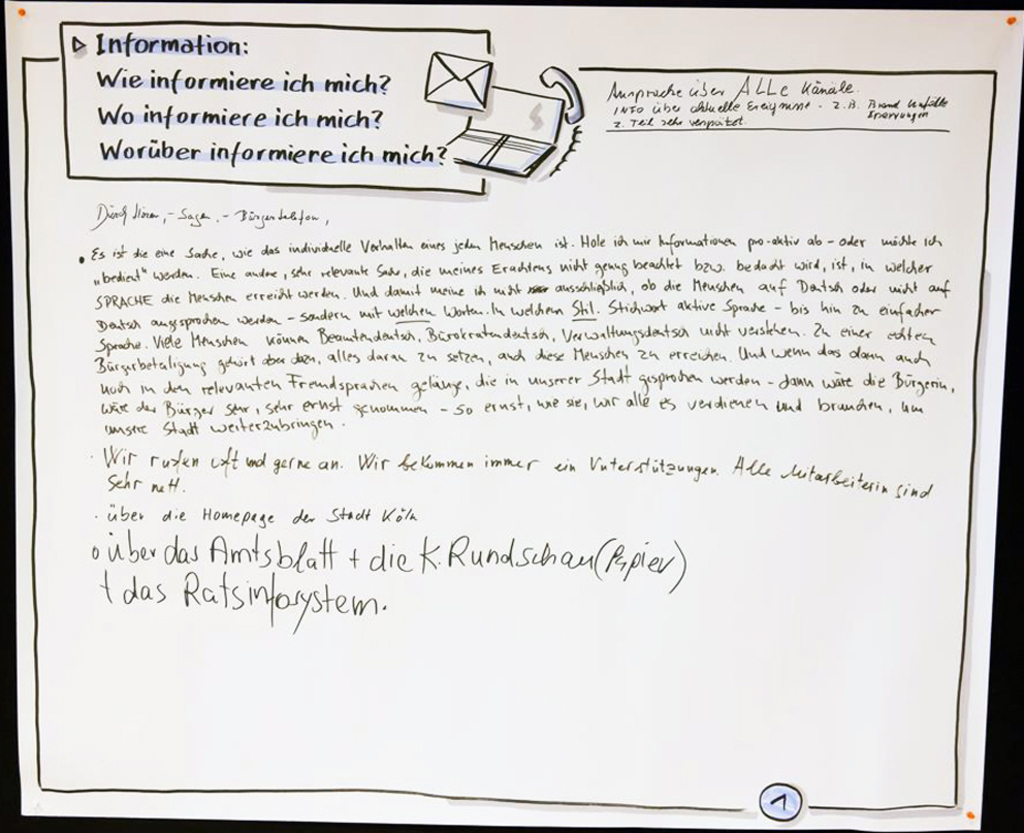 Information:
Wie informiere ich mich?
Wo informiere ich mich?
Worüber informiere ich mich?
Ansprache über ALLe Kanäle.
INFO über aktuelle Ereignisse - z.B. Brand Unfälle
Sperrungen
z. Teil sehr verspätet.
Durch Hören, -Sagen, - Bürgertelefon,
• Es ist die eine Sache, wie das individuelle Verhalten eines jeden Menschen ist. Hole ich mir Informationen pro-aktiv ab - oder möchte ich
„bedient" werden. Eine andere, sehr relevante Sache, die meines Erachtens nicht genug beachtet bzw. bedacht wird, ist, in welcher
SPRACHE die Menschen erreicht werden. Und damit meine ich nicht ausschließlich, ob die Menschen auf Deutsch oder nicht auf
Deutsch angesprochen werden - sondern mit welchen Worten. In welchem Stil. Stichwort aktive Sprache - bis hin zu einfacher
Sprache. Viele Menschen können Beamtendeutsch, Bürokratendeutsch, Verwaltungsdeutsch nicht verstehen. Zu einer echten
Bürgerbeteiligung gehört aber dazu, alles daran zu setzen, auch diese Menschen zu erreichen. Und wenn das dann auch
noch in den relevanten Fremdsprachen gelänge, die in unserer Stadt gesprochen werden - dann wäre die Bürgerin,
wäre der Bürger sehr, sehr ernst genommen - so ernst, wie sie, wir alle es verdienen und brauchen, um
unsere Stadt weiterzubringen.
· Wir rufen oft und gerne an. Wir bekommen immer ein Unterstützungen. Alle Mitarbeiterin sind
Sehr nett.
· über die Homepage der Stadt Köln
o über das Amtsblatt + die K. Rundschau (Papier)
+ das Ratsinfosystem.
1